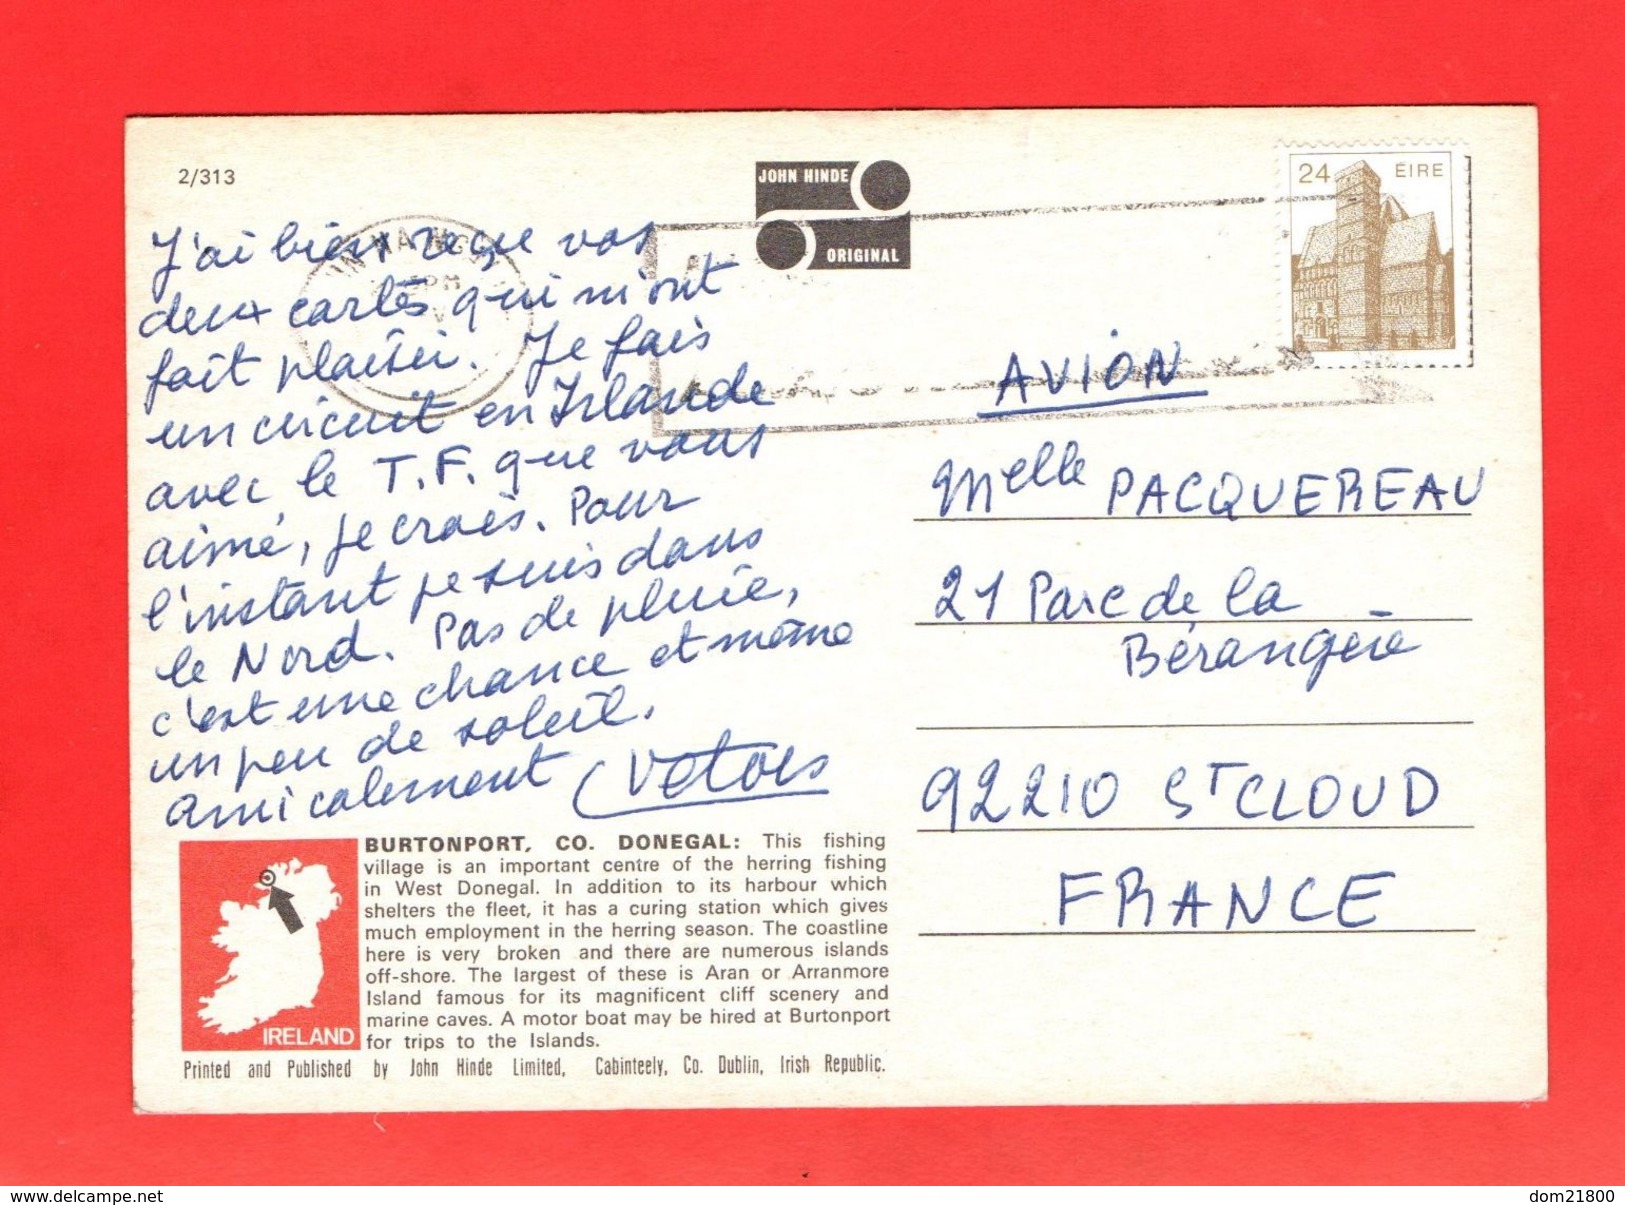 2/313
JOHN HINDE
ORIGINAL
24 ÉIRE
J'ai bien reçue vos
deux cartes qui m'ont
fait plaisir. Je fais
un circuit en Irlande
avec le T.F. que vous
aimé, je crois. Pour
l'instant je suis dans
le Nord. Pas de pluie,
c'est une chance et même
un peu de soleil.
amicalement
AVION
Melle PACQUEREAU
21 Parc de la
Bérangère
92210 ST CLOUD
FRANCE
BURTONPORT, CO. DONEGAL: This fishing
village is an important centre of the herring fishing
in West Donegal. In addition to its harbour which
shelters the fleet, it has a curing station which gives
much employment in the herring season. The coastline
here is very broken and there are numerous islands
off-shore. The largest of these is Aran or Arranmore
Island famous for its magnificent cliff scenery and
marine caves. A motor boat may be hired at Burtonport
for trips to the Islands.
IRELAND
Printed and Published by John Hinde Limited, Cabinteely, Co. Dublin, Irish Republic.
www.delcampe.net
dom21800